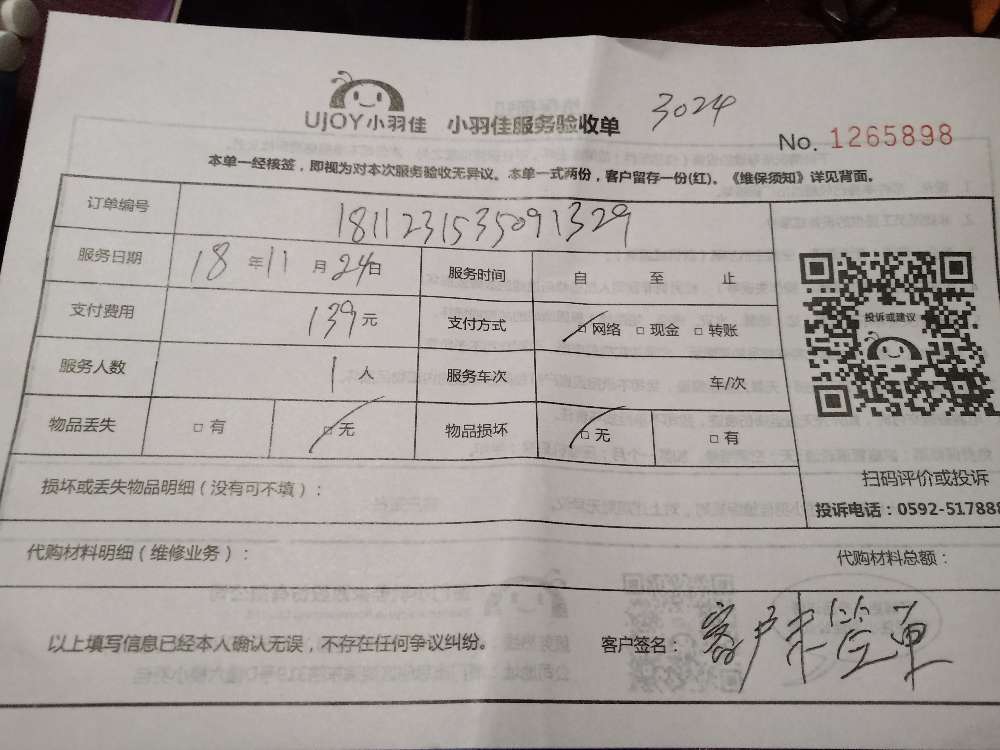 3024
UjOY小羽佳 小羽佳服务验收单
No. 1265898
本单一经核签，即视为对本次服务验收无异议。本单一式两份，客户留存一份(红)。《维保须知》详见背面。
订单编号 1811231535091329
服务日期 18年11月24日 服务时间 自 至 止
支付费用 139元 支付方式 □网络 □现金 □转账
投诉或建议
服务人数 1人 服务车次 车/次
物品丢失 □有 □无 物品损坏 □无 □有
扫码评价或投诉
损坏或丢失物品明细（没有可不填）：
投诉电话：0592-517888
代购材料明细（维修业务）： 代购材料总额：
以上填写信息已经本人确认无误，不存在任何争议纠纷。 客户签名：客户未签单